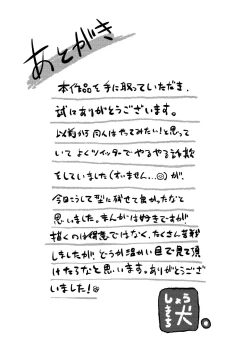 あとがき
本作品を手に取っていただき、
誠にありがとうございます。
以前から同人はやってみたい!と思って
いてよくツイッターでやるやる詐欺
をしていました(すいません…)が、
今回こうして型に残せて良かったなと
思いました。まんがは好きですが
描くのは得意ではなく、たくさん苦戦
しましたが、どうか温かい目で見て頂
けたらなと思います。ありがとうござ
いました!
しょう
犬